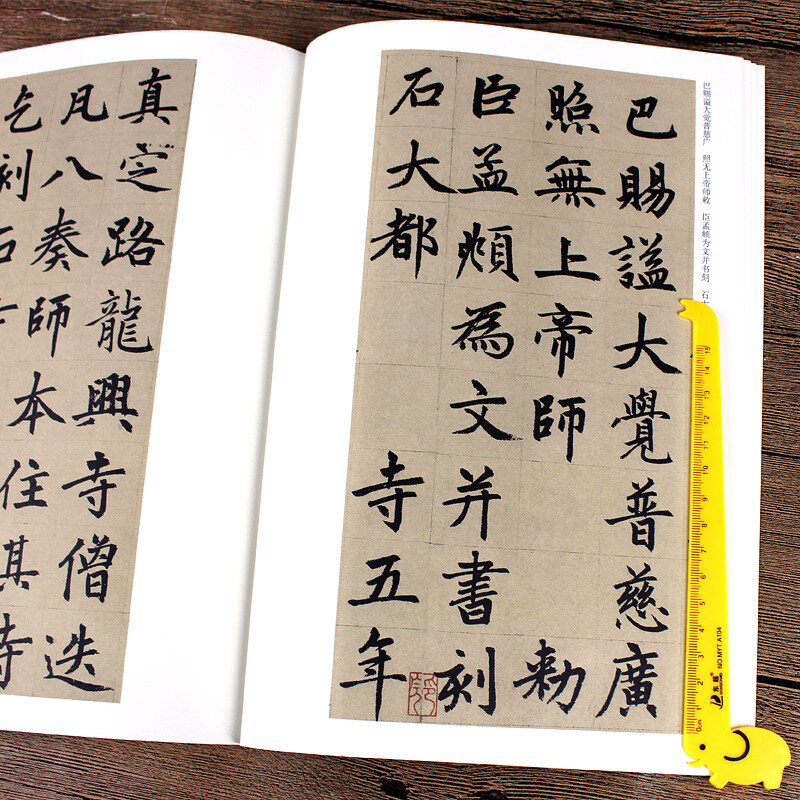 巴赐谥大觉普慈广 照无上帝师敕 臣孟頫为文并书刻 石
巴賜謚大覺普慈廣
照無上帝師 勑
臣孟頫為文并書刻
石大都 寺五年
真定路龍興寺僧迭
凡八奏師本住其寺
乞刻石
0cm 1 2 3 4 5 6 7 8 9 10 11 12 13 14 15
NO.MYT A104